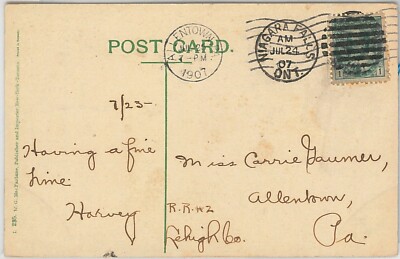 POST CARD.
ALLENTOWN
PM
1907
NIAGARA FALLS
AM
JUL 24
07
ONT.
1 1
7/23-
Having a fine
time.
Harvey
Miss Carrie Gaumer,
Allentown,
Pa.
R.R. #2
Lehigh Co.